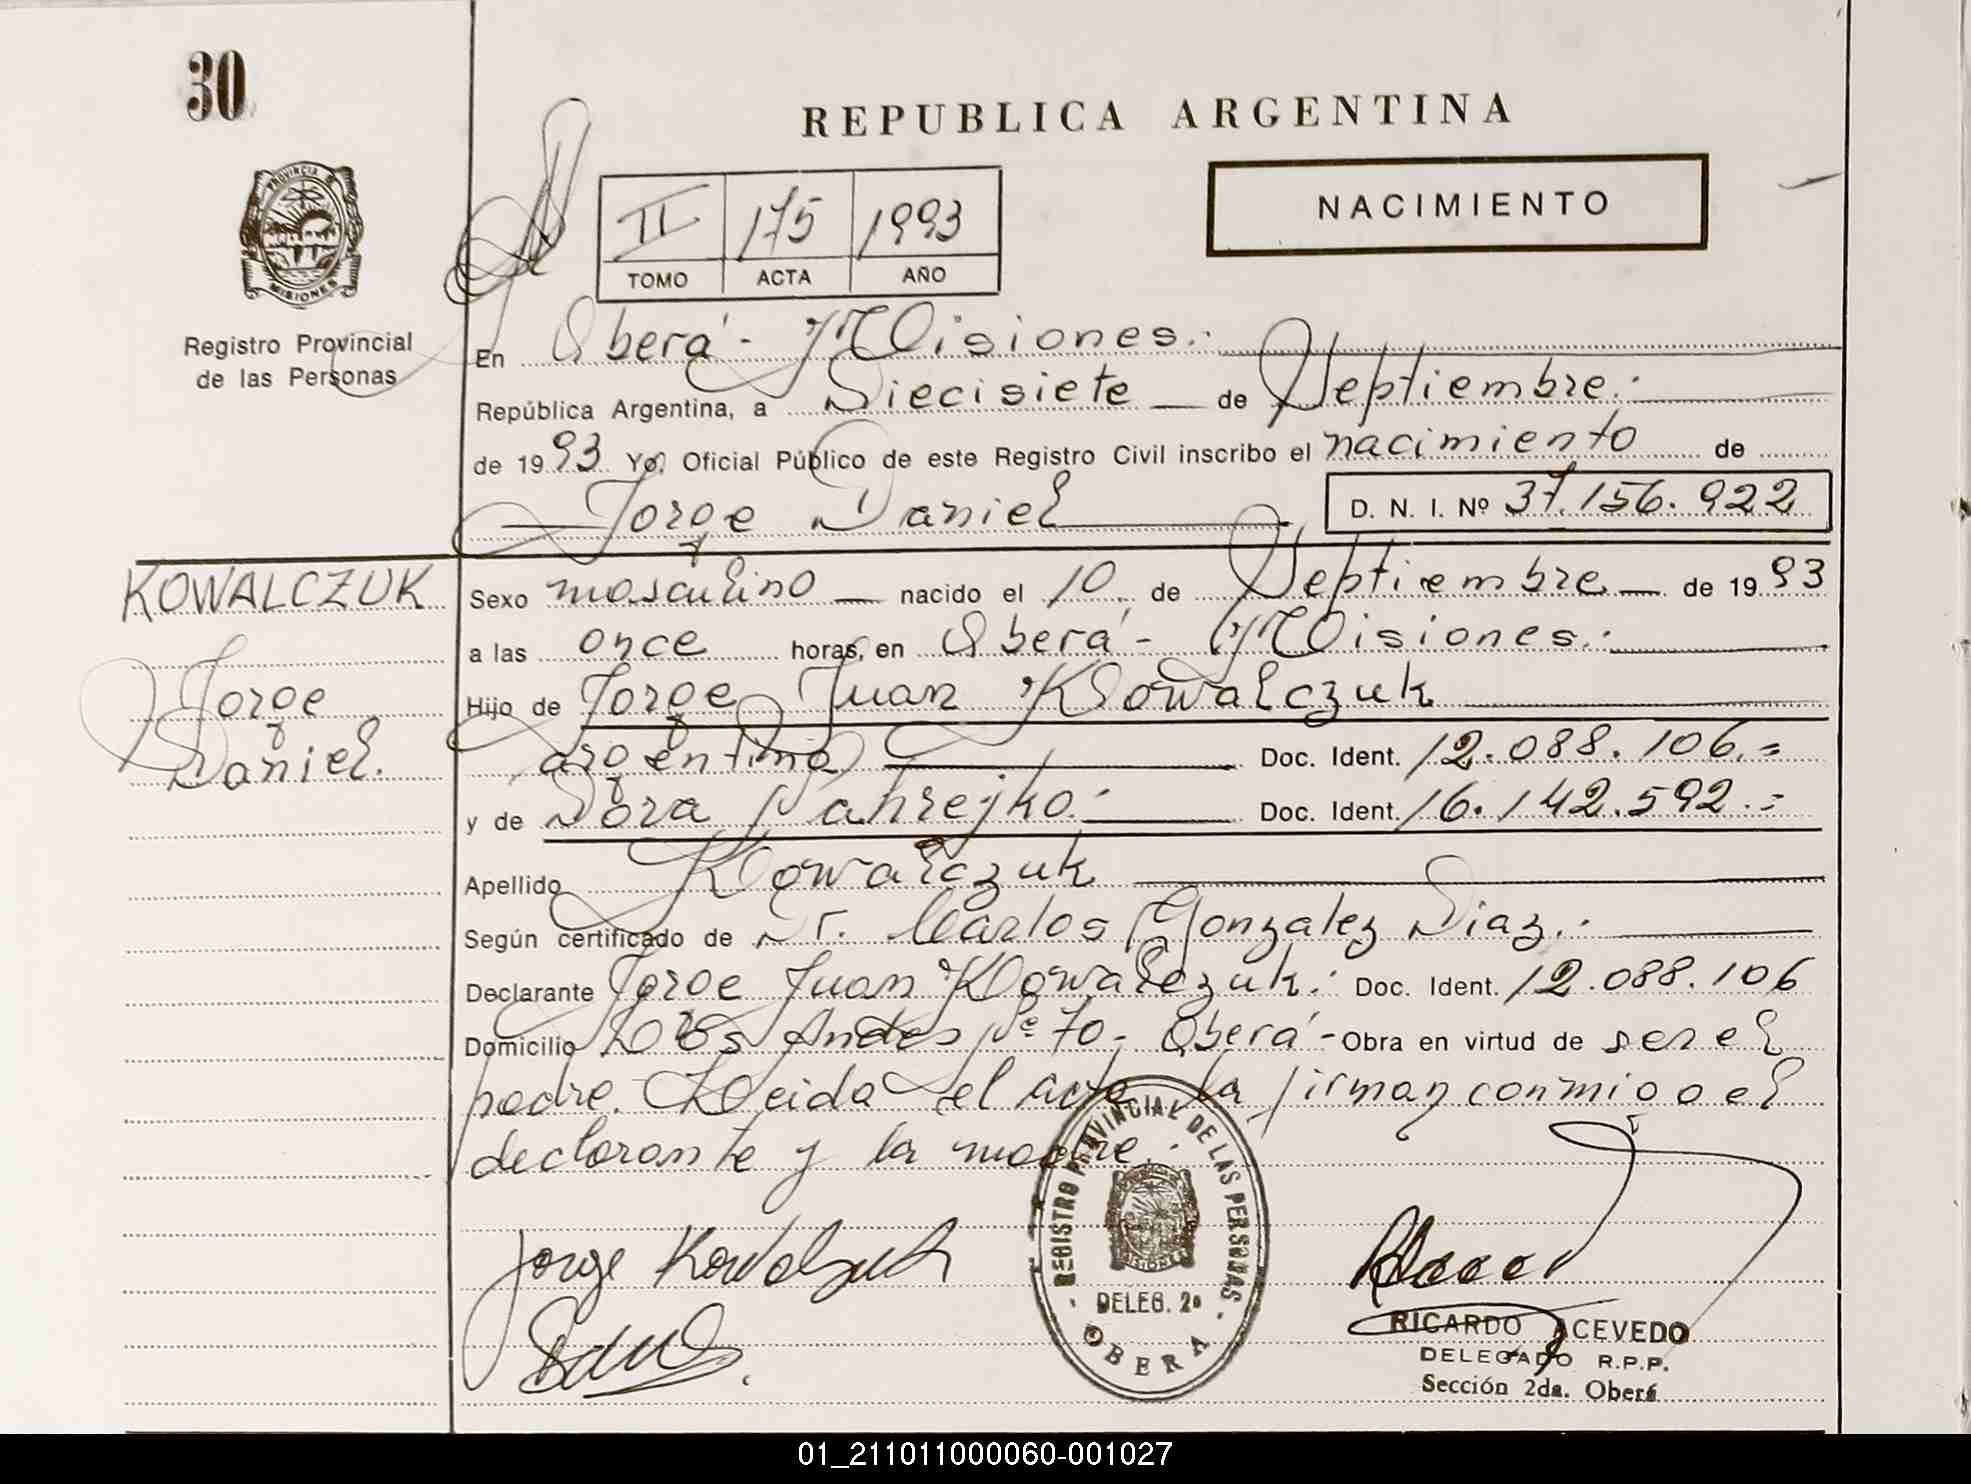 30
REPUBLICA ARGENTINA
NACIMIENTO
II 175 1993
TOMO ACTA AÑO
PROVINCIA DE
MISIONES
Registro Provincial
de las Personas
En Oberá - Misiones.-
República Argentina, a Diecisiete de Septiembre.-
de 1993 Yo, Oficial Público de este Registro Civil inscribo el nacimiento de
Jorge Daniel
D. N. I. Nº 37.156.922
KOWALCZUK
Jorge
Daniel.
Sexo masculino nacido el 10 de Septiembre de 1993
a las once horas, en Oberá - Misiones.-
Hijo de Jorge Juan Kowalczuk
argentino Doc. Ident. 12.088.106.=
y de Dora Pahrejko.- Doc. Ident. 16.142.592.=
Apellido Kowalczuk
Según certificado de Dr. Carlos Gonzalez Diaz.-
Declarante Jorge Juan Kowalczuk.- Doc. Ident. 12.088.106
Domicilio Los Andes Nº 70 - Oberá - Obra en virtud de ser el
padre. Leida el acta la firman conmigo el
declarante y la madre.-
Jorge Kowalczuk
REGISTRO PROVINCIAL DE LAS PERSONAS
MISIONES
DELEG. 2ª
OBERA
RICARDO ACEVEDO
DELEGADO R.P.P.
Sección 2da. Oberá
01_211011000060-001027